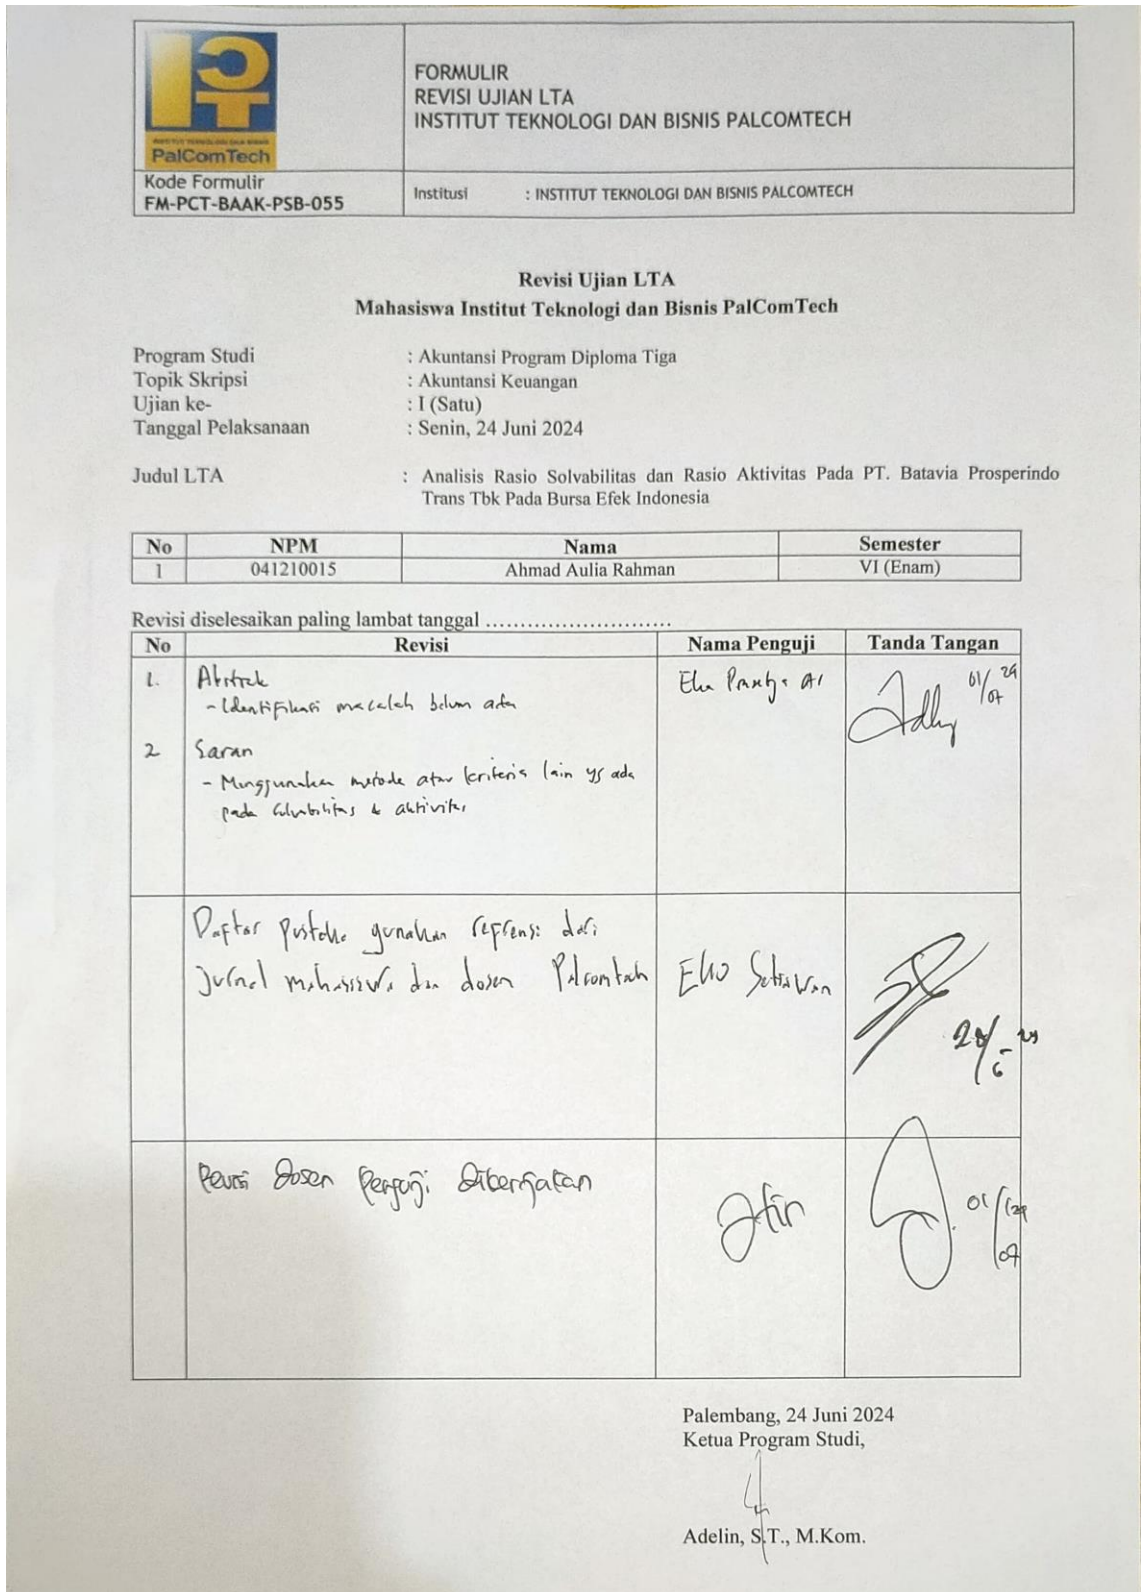 INSTITUT TEKNOLOGI DAN BISNIS
PalComTech
FORMULIR
REVISI UJIAN LTA
INSTITUT TEKNOLOGI DAN BISNIS PALCOMTECH
Kode Formulir
FM-PCT-BAAK-PSB-055
Institusi : INSTITUT TEKNOLOGI DAN BISNIS PALCOMTECH
Revisi Ujian LTA
Mahasiswa Institut Teknologi dan Bisnis PalComTech
Program Studi : Akuntansi Program Diploma Tiga
Topik Skripsi : Akuntansi Keuangan
Ujian ke- : I (Satu)
Tanggal Pelaksanaan : Senin, 24 Juni 2024
Judul LTA : Analisis Rasio Solvabilitas dan Rasio Aktivitas Pada PT. Batavia Prosperindo
Trans Tbk Pada Bursa Efek Indonesia
No NPM Nama Semester
1 041210015 Ahmad Aulia Rahman VI (Enam)
Revisi diselesaikan paling lambat tanggal ...........................
No Revisi Nama Penguji Tanda Tangan
1. Abstrak Eka 01/07 24
- Identifikasi masalah belum ada
2 Saran
- Menggunakan metode atau kriteria lain yg ada
pada solvabilitas & aktivitas
Daftar pustaka gunakan refrensi dari
jurnal mahasiswa dan dosen Palcomtech Eko Setiawan
28/6 24
Revisi Dosen Penguji Dikerjakan
01/07 24
Palembang, 24 Juni 2024
Ketua Program Studi,
Adelin, S.T., M.Kom.